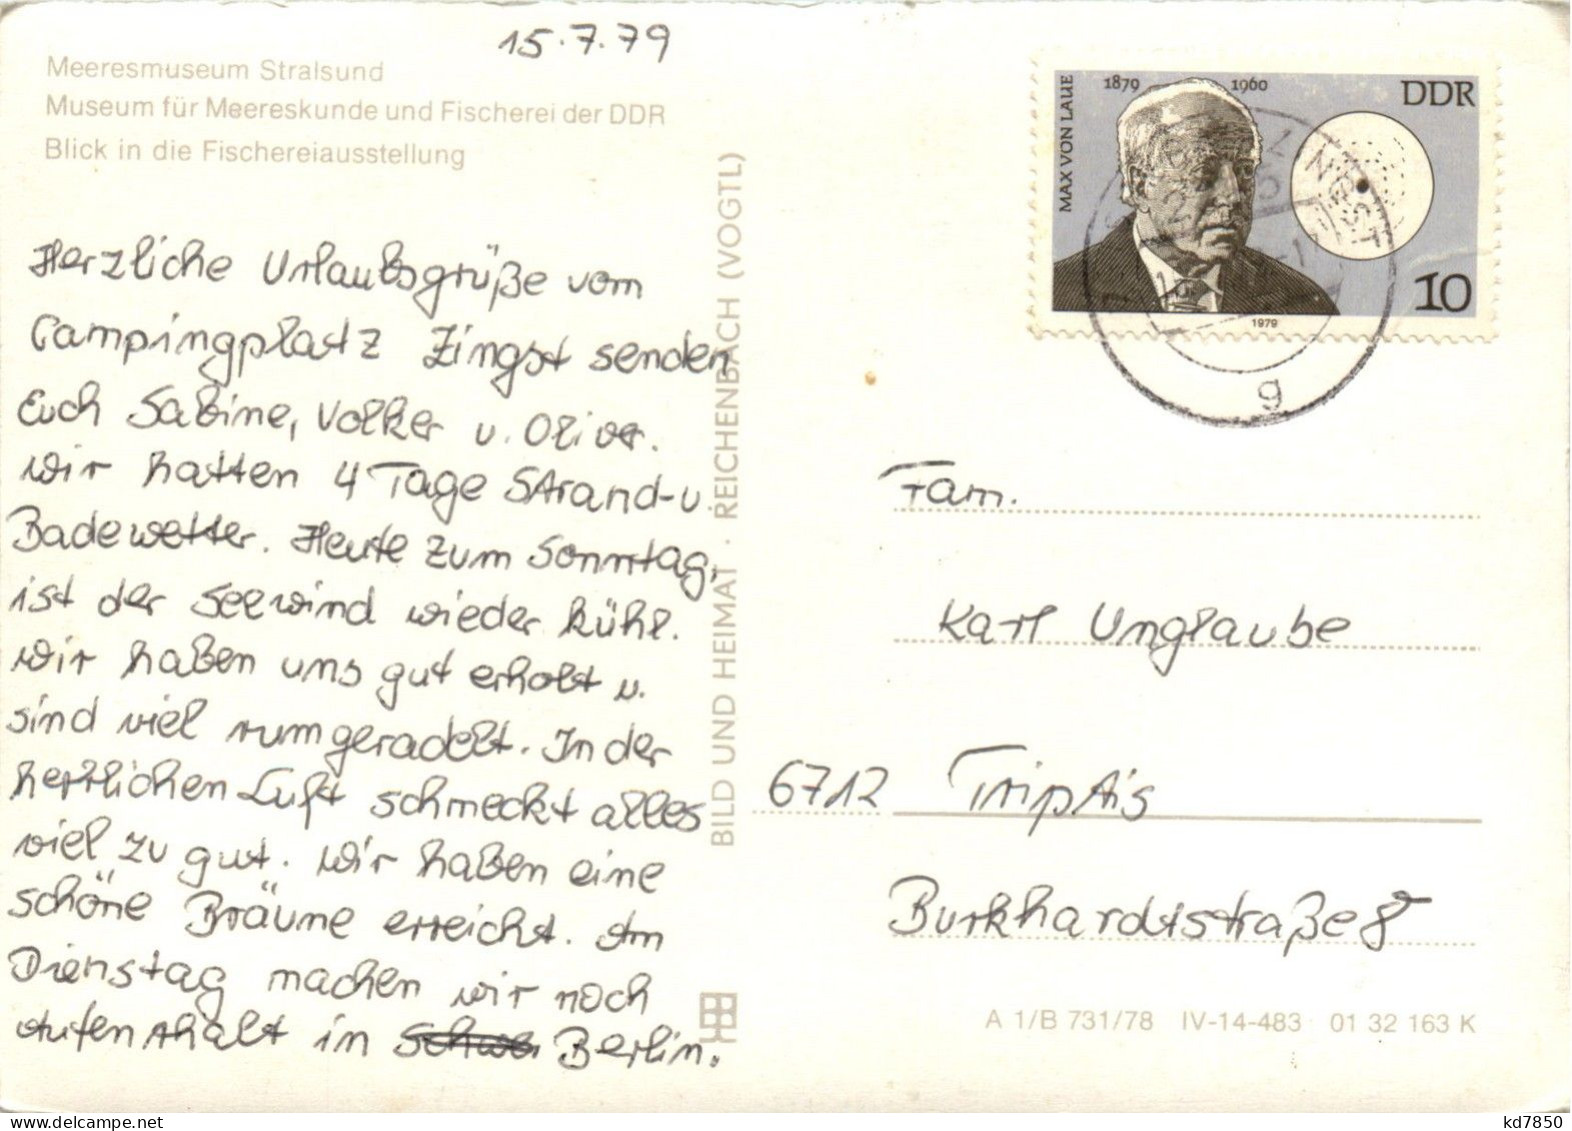 15.7.79
Meeresmuseum Stralsund
Museum für Meereskunde und Fischerei der DDR
Blick in die Fischereiausstellung
Herzliche Urlaubsgrüße vom
Campingplatz Zingst senden
Euch Sabine, Volker u. Oliver.
Wir hatten 4 Tage Strand- u.
Badewetter. Heute zum Sonntag,
ist der Seewind wieder kühl.
Wir haben uns gut erholt u.
sind viel rumgeradelt. In der
herrlichen Luft schmeckt alles
viel zu gut. Wir haben eine
schöne Bräune erreicht. Am
Dienstag machen wir noch
Aufenthalt in Berlin.
BILD UND HEIMAT · REICHENBACH (VOGTL)
MAX VON LAUE
1879 1960
DDR
10
1979
ZINGST
g
Fam.
Karl Unglaube
6712 Triptis
Burkhardtstraße 8
A 1/B 731/78 IV-14-483 01 32 163 K
kd7850